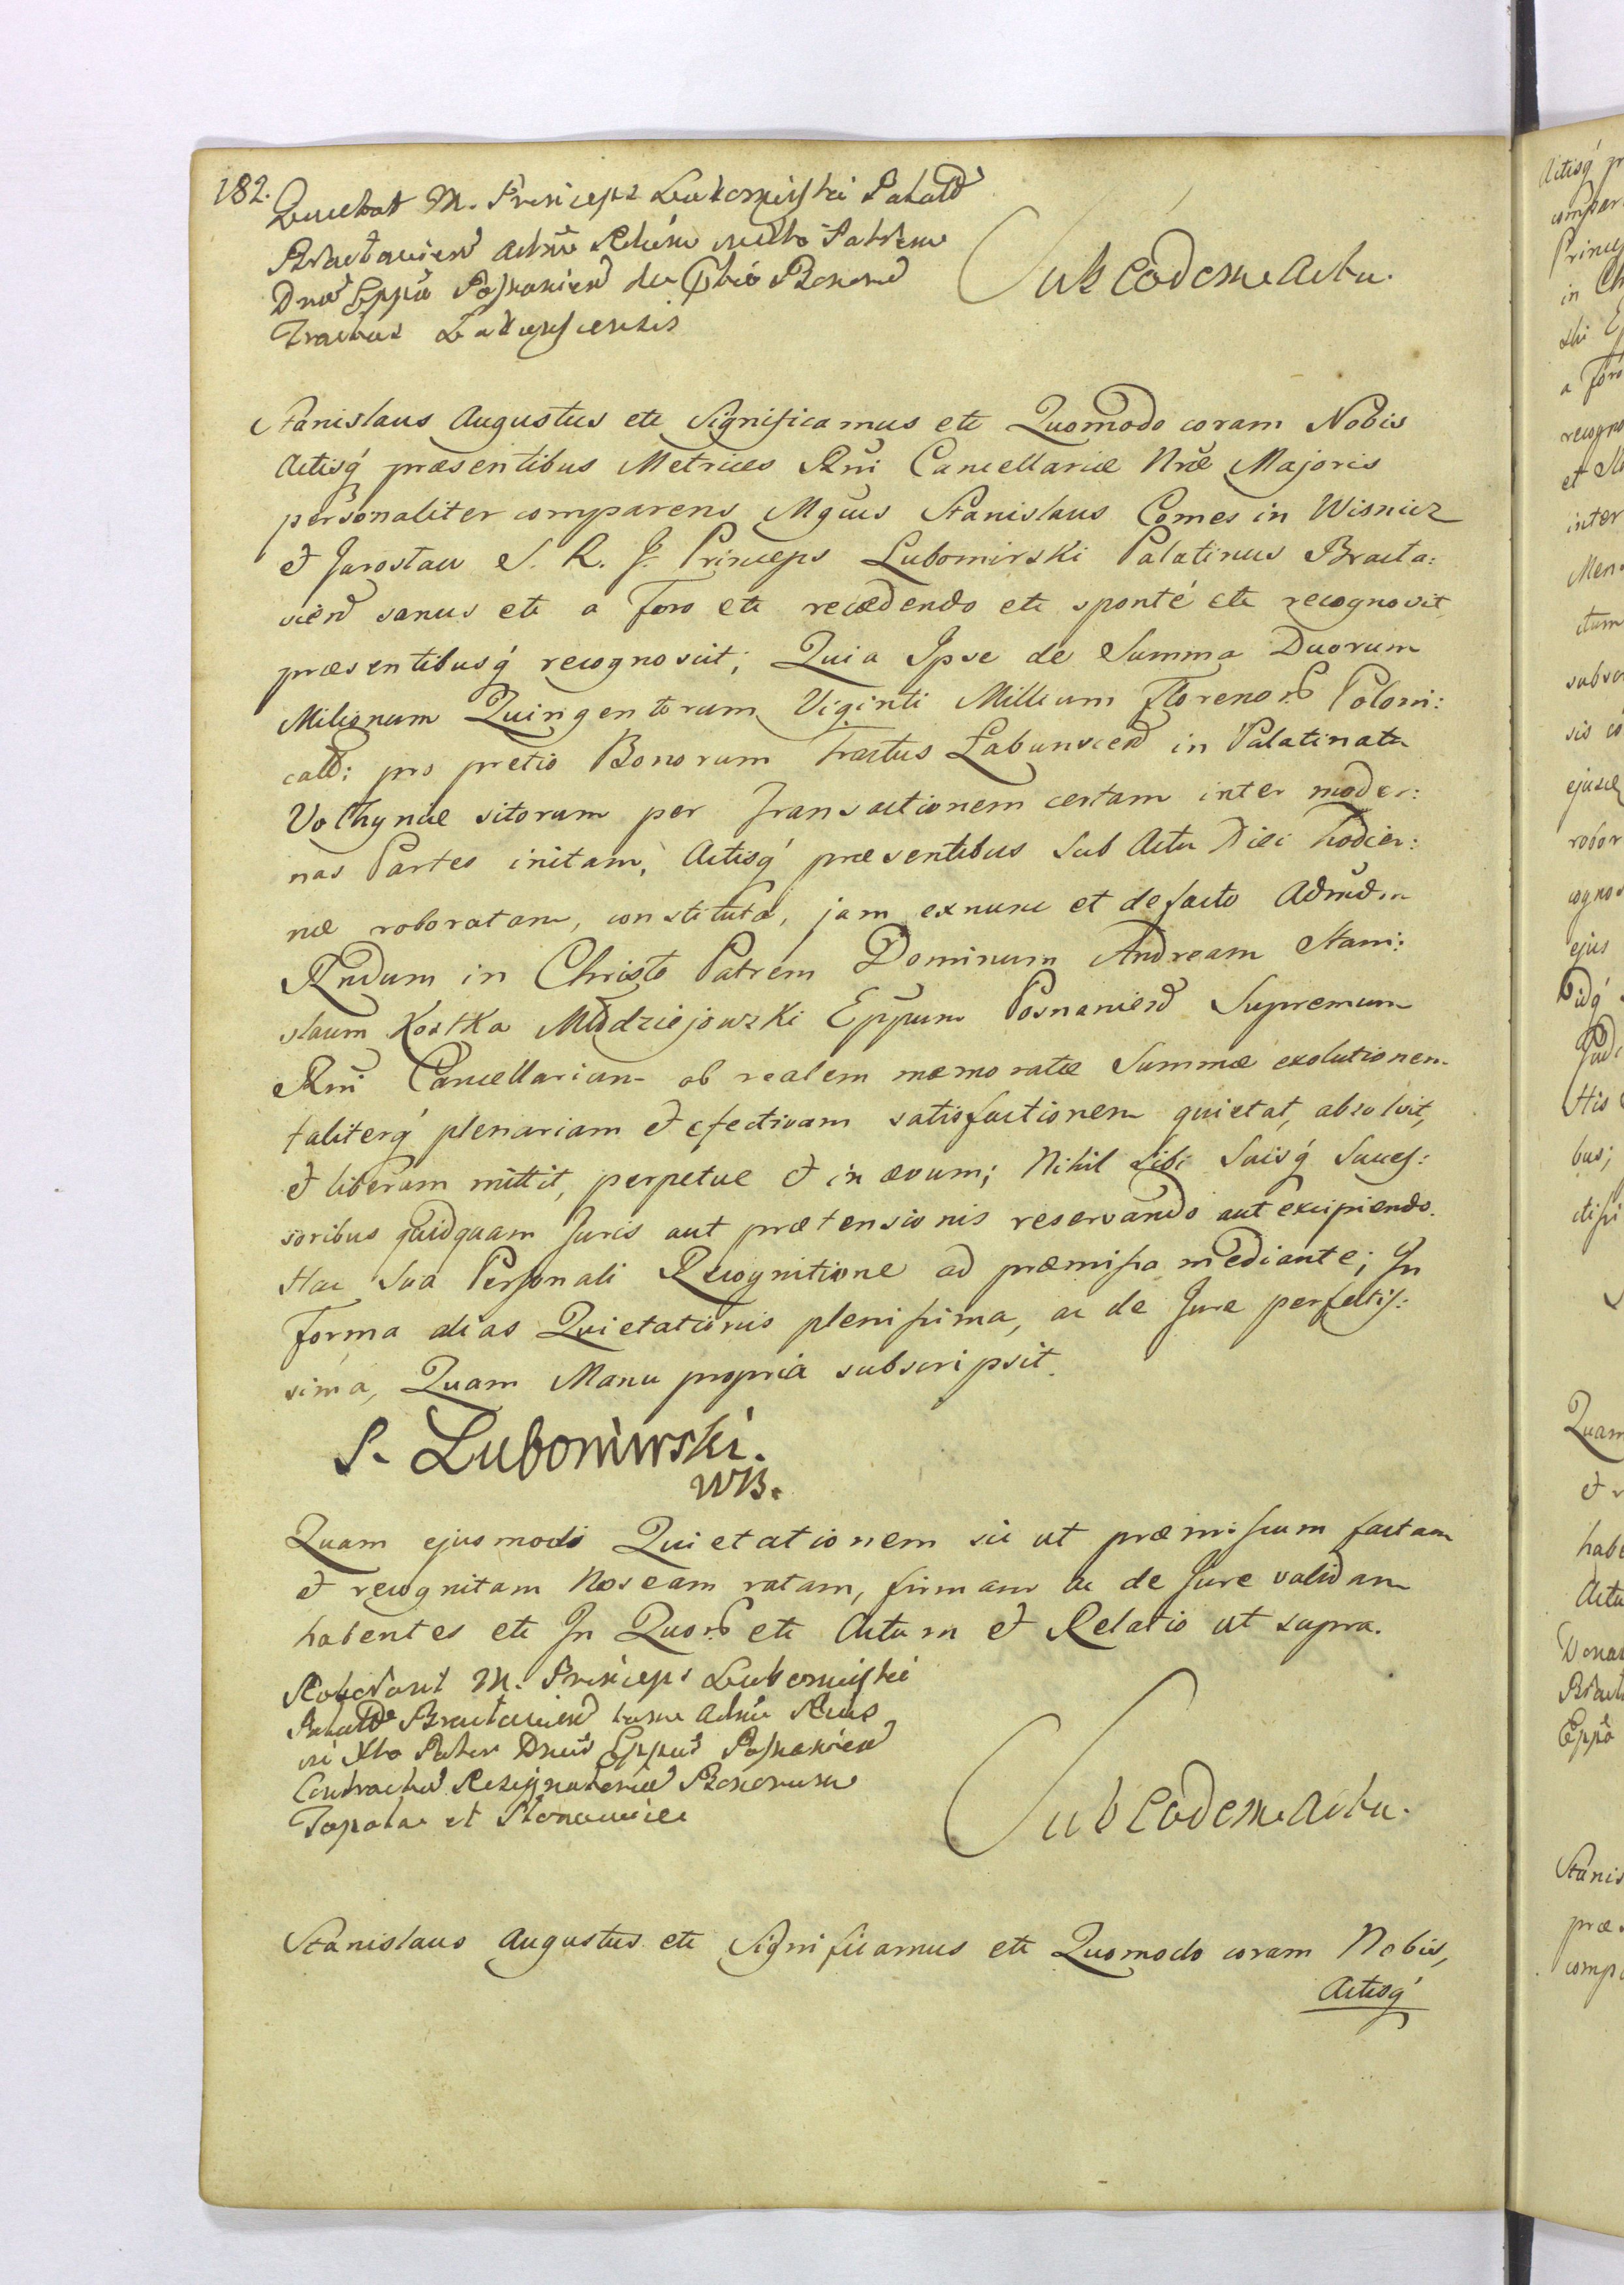 182.
Quietat M. Princeps Lubomirski Palatđ
Bracłavien Admũ Rdum in Xto Patrem
Dnũ Eppũ Posnanien de Ptio Bonorũ
Tractus Łabunscensis
Sub eodem Actu.
Stanislaus Augustus etc Significamus etc Quomodo coram Nobis
Actisq́ præsentibus Metrices Rñi Cancellariæ Nræ Majoris
personaliter comparens Mgcus Stanislaus Comes in Wisnicz
et Jaroslau S. R. J. Princeps Lubomirski Palatinus Bracła:
vien sanus etc a Foro etc recædendo etc sponté etc recognovit
præsentibusq́ recognoscit; Quia Ipse de Summa Duorum
Milionum Quingentorum Viginti Millium Floreno℞ Poloni:
calđ: pro pretio Bonorum Tractus Łabunscen in Palatinatu
Volhyniæ sitorum per Transactionem certam inter moder:
nas Partes initam, Actisq́ præsentibus Sub Actu Diei hodier:
næ roboratam, constituta, jam exnunc et defacto Admũdm
Rndum in Christo Patrem Dominum Andream Stani:
slaum Kostka Młodziejowski Eppum Posnanien Supremum
Rñi Cancellarium ob realem mæmoratæ Summæ exolutionem
taliterq́ plenariam et efectivam satisfactionem quietat, absolvit,
et liberum mittit, perpetue et in ævum; Nihil Sibi Suisq́ Succes:
soribus quidquam Juris aut prætensionis reservando aut excipiendo.
Hac Sua Personali Recognitione ad præmissa mediante; In
Forma alias Quietationis plenissima, ac de Jure perfectis:
sima, Quam Manu propria subscripsit.
S. Lubomirski.
WB.
Quam ejusmodi Quietationem sic ut præmissum factam
et recognitam Nos eam ratam, firmam ac de Jure validam
habentes etc In Quo℞ etc Actum et Relatio ut supra.
Roborant M. Princeps Lubomirski
Palatđ Bracłavien tum Admũ Rdus
in Xto Pater Dnũs Eppus Posnanien
Contractũ Resignatoriũ Bonorum
Sub eodem Actu.
Stanislaus Augustus etc Significamus etc Quomodo coram Nobis,
Actisq́